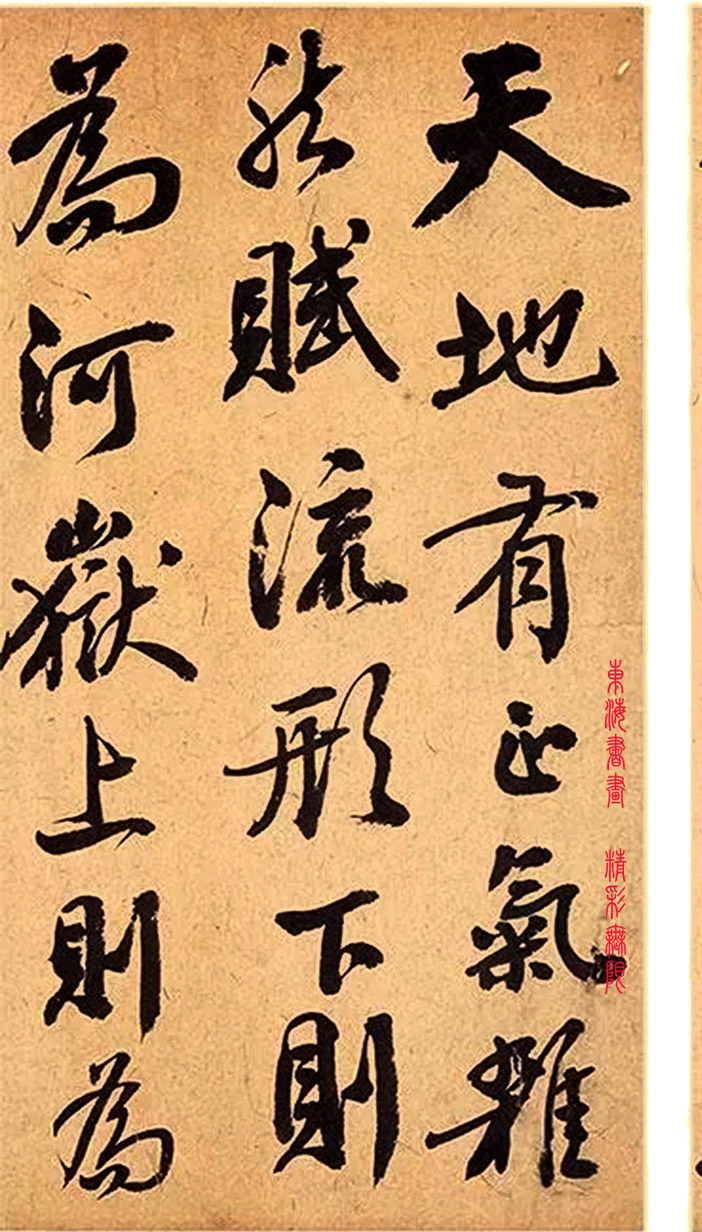 天地有正氣雜
然賦流形下則
為河嶽上則為
東海書畫 精彩無限